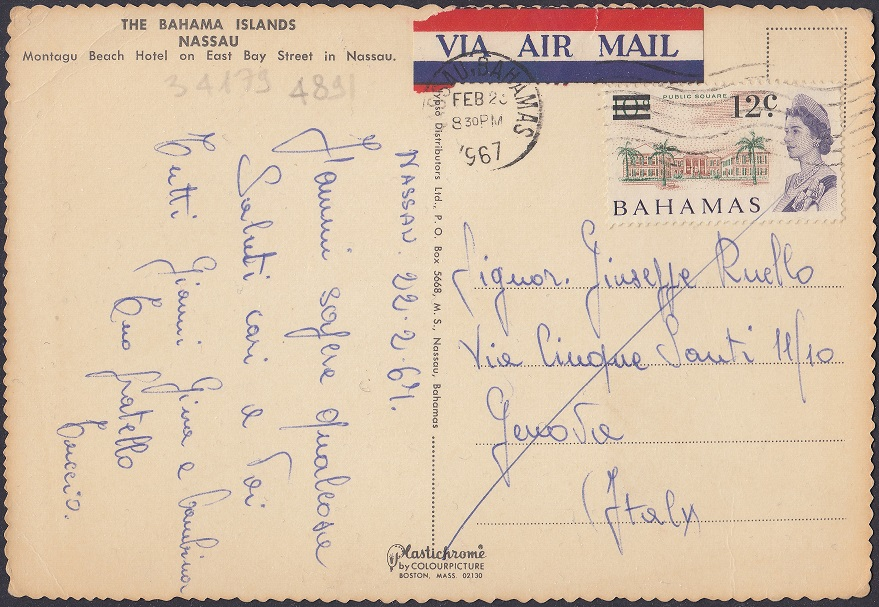 THE BAHAMA ISLANDS
NASSAU
Montagu Beach Hotel on East Bay Street in Nassau.
34179 4891
VIA AIR MAIL
NASSAU, BAHAMAS
FEB 23
8 30 PM
1967
PUBLIC SQUARE
10d 12c
BAHAMAS
Distributors Ltd., P. O. Box 5668, M. S., Nassau, Bahamas
NASSAU. 22-2-67.
Fammi sapere qualcosa
Saluti cari a Voi
Tutti Gianni Gina e bambina
tuo fratello
Signor. Giuseppe Ruello
Via Cinque Santi 11/10
Genova
(Italy
Plastichrome
by COLOURPICTURE
BOSTON, MASS. 02130